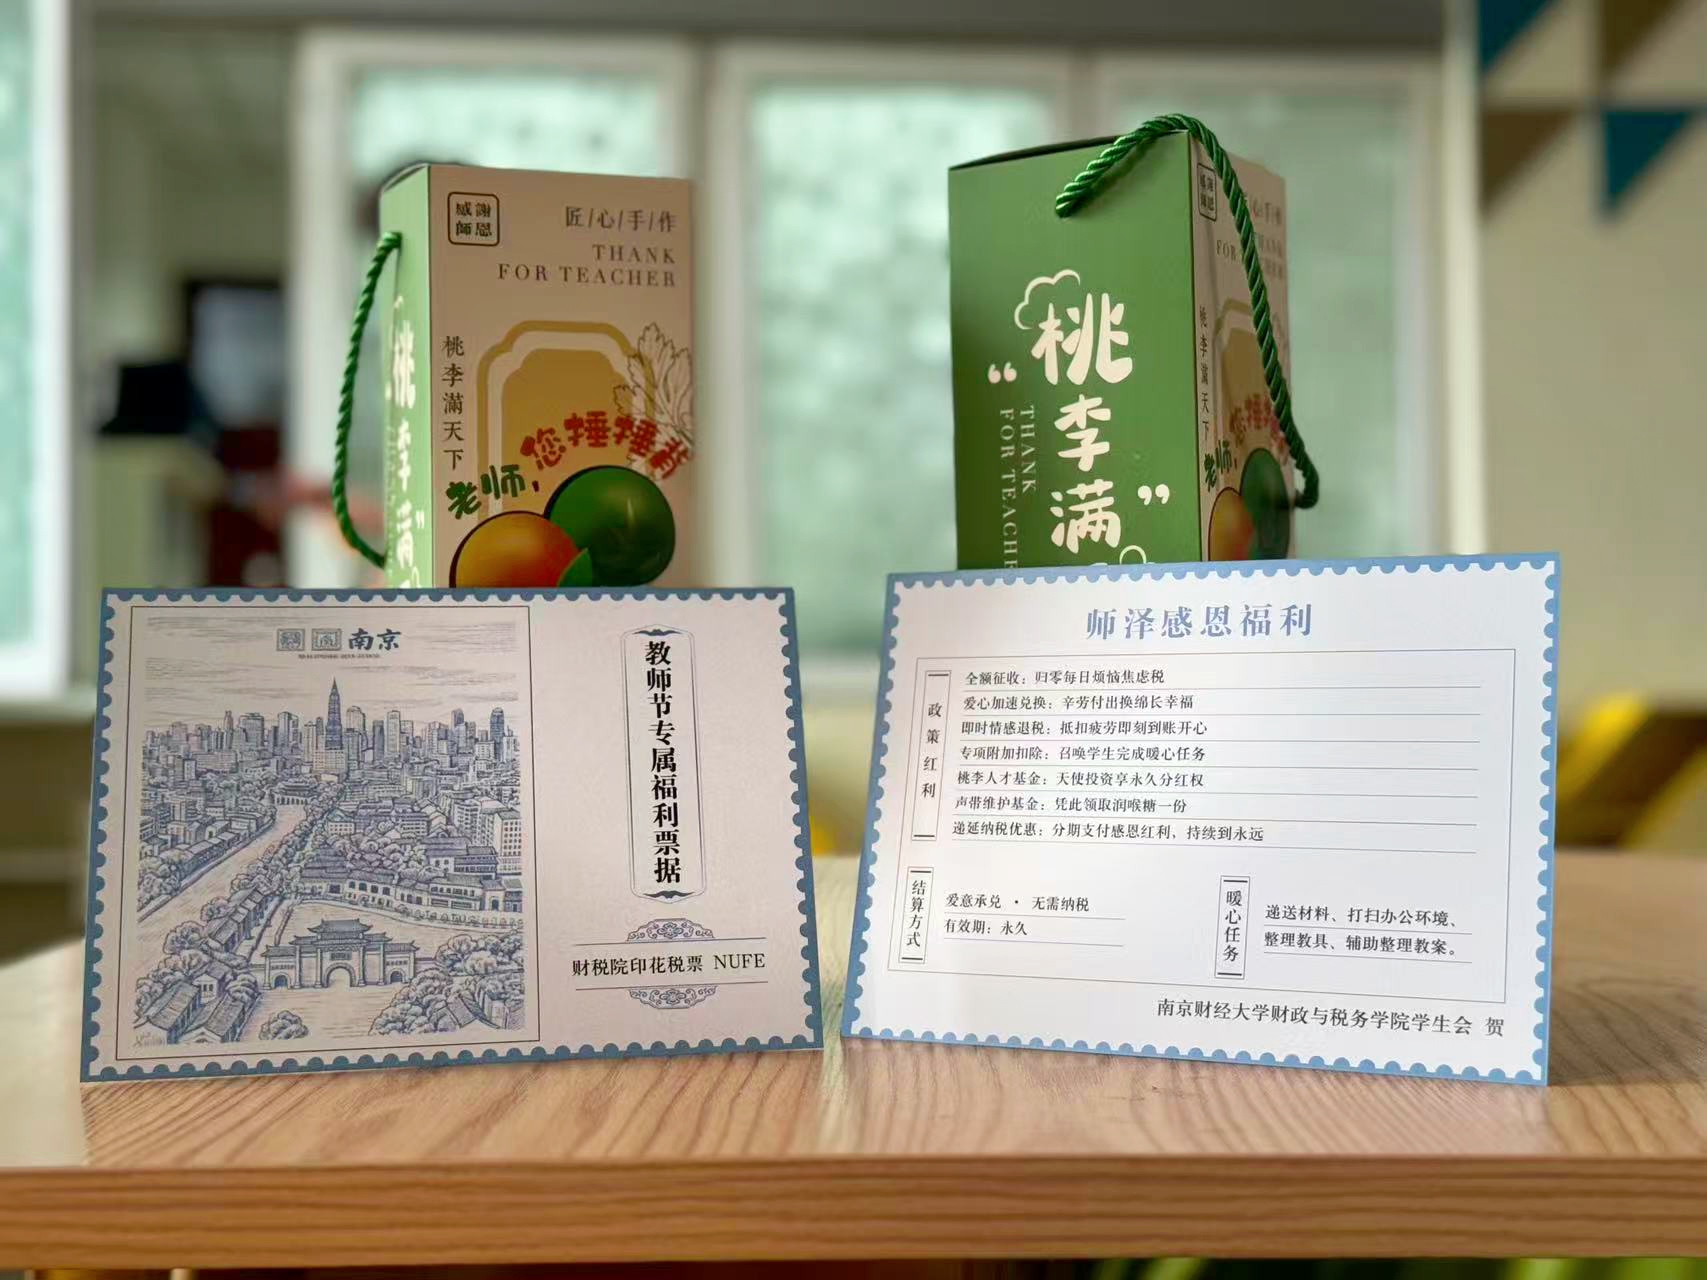 感謝
師恩
匠/心/手/作
THANK
FOR TEACHER
桃李滿天下
老师,
您捶捶莉
桃李满
“桃李满”
THANK
FOR TEACHER
感謝
師恩
桃李滿天下
老师,
南京
教师节专属福利票据
财税院印花税票 NUFE
师泽感恩福利
政策红利
全额征收：归零每日烦恼焦虑税
爱心加速兑换：辛劳付出换绵长幸福
即时情感退税：抵扣疲劳即刻到账开心
专项附加扣除：召唤学生完成暖心任务
桃李人才基金：天使投资享永久分红权
声带维护基金：凭此领取润喉糖一份
递延纳税优惠：分期支付感恩红利、持续到永远
结算方式
爱意承兑 · 无需纳税
有效期：永久
暖心任务
递送材料、打扫办公环境、
整理教具、辅助整理教案。
南京财经大学财政与税务学院学生会 贺